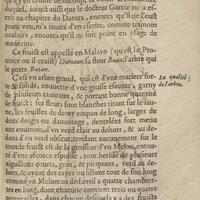 duquel, iointt aussi que le docteur Garcie en a es-
té au chapitre du Datura, encores qu'il ne l'eust
point veu, m'a induit d'en escrire, comme tesmoin
oculaire, encores qu'il ne soit point en vsage de
medecine.
Ce fruict est appellé en Malayo (qu'est la Pro-
uince ou il croist) Duriaon: sa fleur Buaa: l'arbre qui
le porte Batan.
C'est vn arbre grand, qui est d'vne matiere for-
te & solide, couuerte d'vne grosse escorce, garny
de plusieurs rameaux, & portant bonne quantité
de fruict: ses fleurs sont blanches tirant sur le iau-
ne, les feuilles de demy empan de long, larges de
deux doigts ou dauantage, dentelées fort menu
aux enuirons, d'vn verd clair au dehors, & au de-
dans d'vn verd obscur, tendant aucunement sur le
fruict est de la grosseur d'vn Melon,
d'vne escorce espoisse, tout herissé de plusieurs
aiguillons courts, gros, & picquans, verd au de-
hors, & ayant des rayes ou sillons tout de son long
comme vn Melon: au dedans il a quatre chambret-
tes en long, dont chacune contient trois ou quatre
receptacles, dans chacun desquels y a des fruicts
La qualité
de l'arbre.